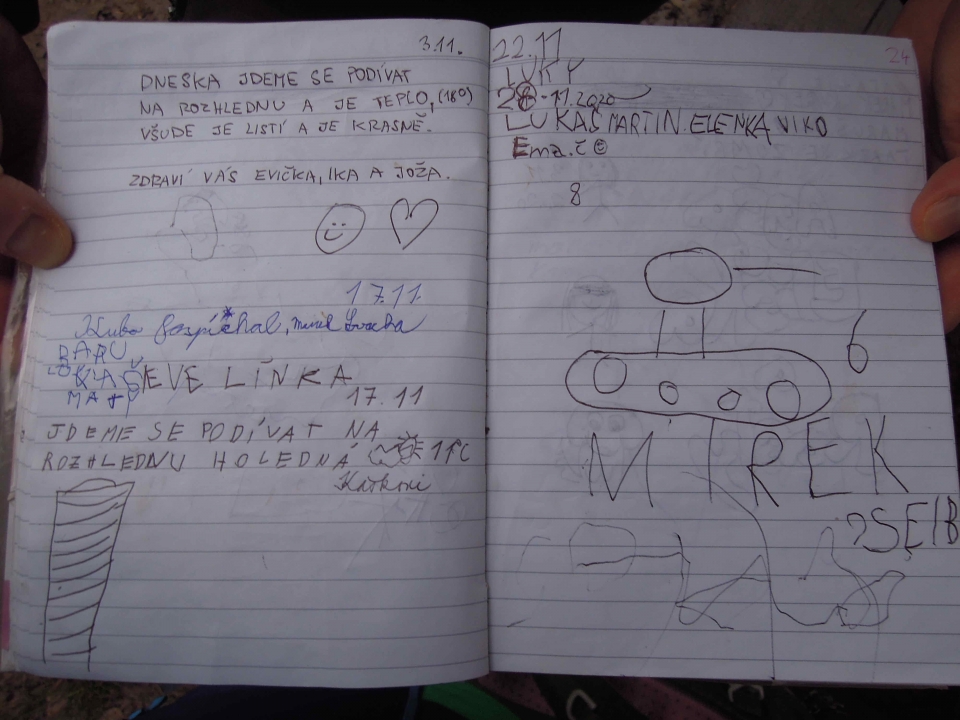 3.11.
DNESKA JDEME SE PODÍVAT
NA ROZHLEDNU A JE TEPLO, (18°)
VŠUDE JE LISTÍ A JE KRASNĚ.
ZDRAVÍ VÁS EVIČKA, IKA A JOŽA.
17.11.
Kuba
BARU
EVELÍNKA
MATY
17.11
JDEME SE PODÍVAT NA
ROZHLEDNU HOLEDNÁ
22.11
24
LUKY
-11.2020
LUKAŠ MARTIN. ELENKA VIKO
Ema.č
8
6
MIREK
SEIB